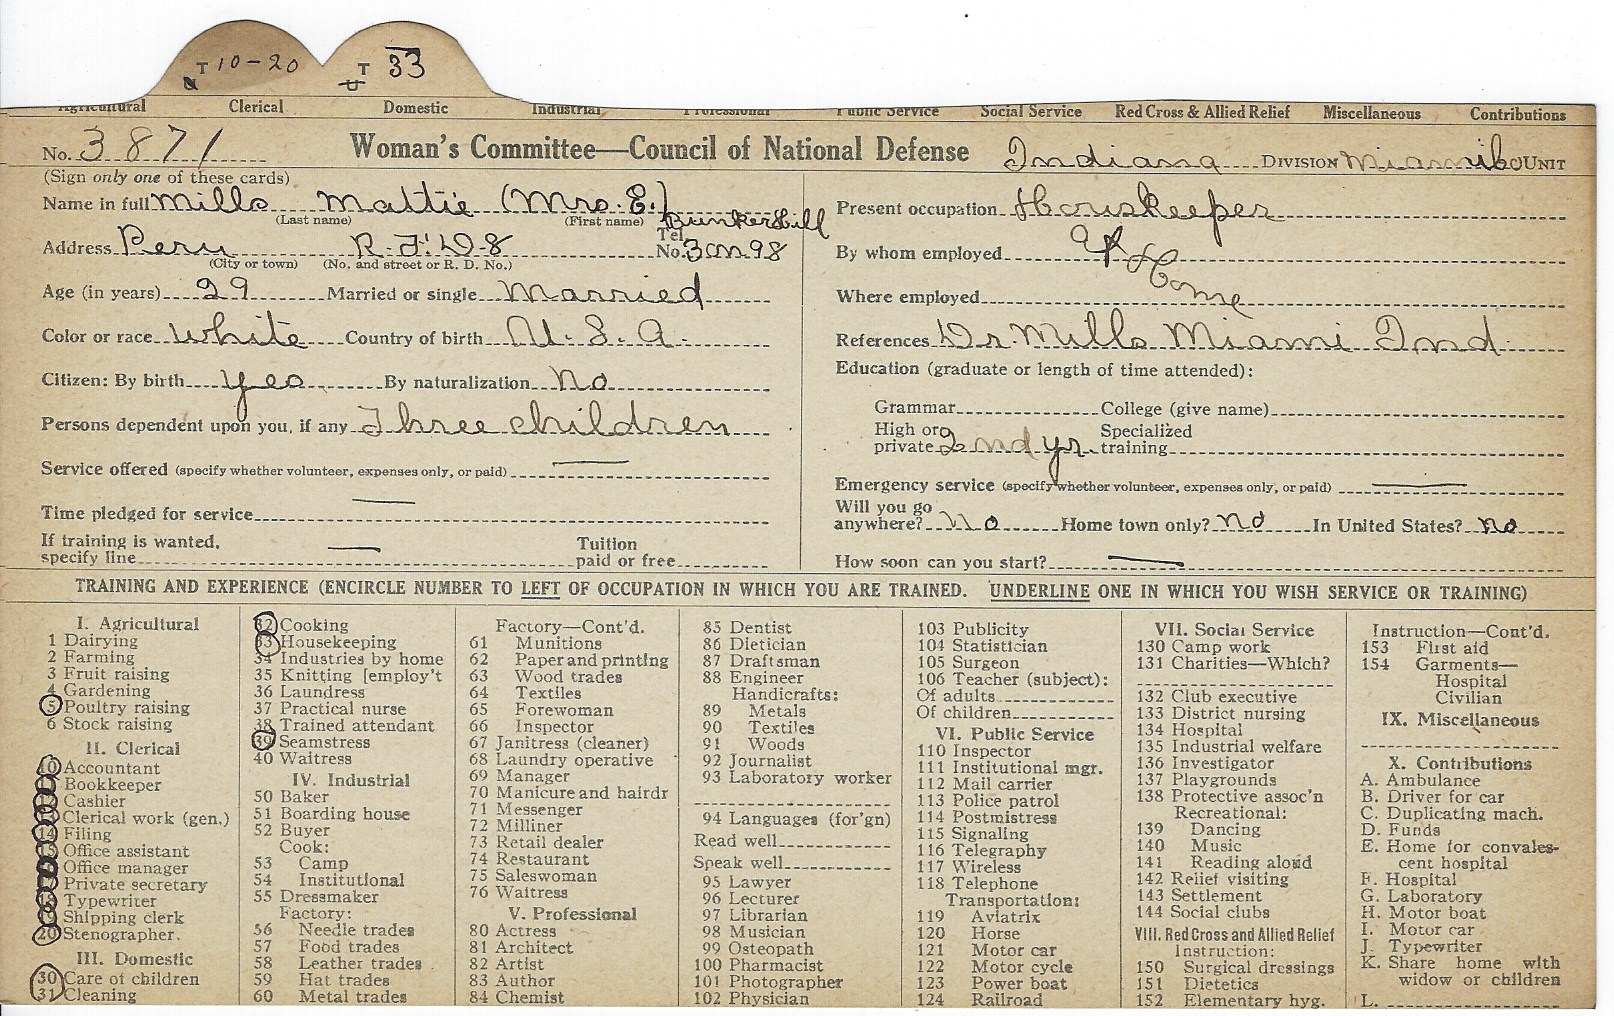 T 10-20 T 33
Agricultural Clerical Domestic Industrial Professional Public Service Social Service Red Cross & Allied Relief Miscellaneous Contributions
No. 3871 Woman's Committee—Council of National Defense Indiana DIVISION Miami UNIT
(Sign only one of these cards)
Name in full Mills Mattie (Mrs. E.)
(Last name) (First name)
Bunker Hill
Address Peru R.F.D-8 Tel. No. 3 on 98
(City or town) (No. and street or R. D. No.)
Age (in years) 29 Married or single Married
Color or race White Country of birth U.S.A.
Citizen: By birth yes By naturalization No
Persons dependent upon you, if any Three children
Service offered (specify whether volunteer, expenses only, or paid) —
Time pledged for service —
If training is wanted, specify line — Tuition paid or free
Present occupation Houskeeper
By whom employed At
Where employed Home
References Dr. Mills Miami Ind.
Education (graduate or length of time attended):
Grammar College (give name)
High or private 2nd yr. Specialized training
Emergency service (specify whether volunteer, expenses only, or paid) —
Will you go anywhere? No Home town only? No In United States? No
How soon can you start? —
TRAINING AND EXPERIENCE (ENCIRCLE NUMBER TO LEFT OF OCCUPATION IN WHICH YOU ARE TRAINED. UNDERLINE ONE IN WHICH YOU WISH SERVICE OR TRAINING)
I. Agricultural
1 Dairying
2 Farming
3 Fruit raising
4 Gardening
5 Poultry raising
6 Stock raising
II. Clerical
10 Accountant
11 Bookkeeper
12 Cashier
13 Clerical work (gen.)
14 Filing
15 Office assistant
16 Office manager
17 Private secretary
18 Typewriter
19 Shipping clerk
20 Stenographer.
III. Domestic
30 Care of children
31 Cleaning
32 Cooking
33 Housekeeping
34 Industries by home
35 Knitting [employ't
36 Laundress
37 Practical nurse
38 Trained attendant
39 Seamstress
40 Waitress
IV. Industrial
50 Baker
51 Boarding house
52 Buyer
Cook:
53 Camp
54 Institutional
55 Dressmaker
Factory:
56 Needle trades
57 Food trades
58 Leather trades
59 Hat trades
60 Metal trades
Factory—Cont'd.
61 Munitions
62 Paper and printing
63 Wood trades
64 Textiles
65 Forewoman
66 Inspector
67 Janitress (cleaner)
68 Laundry operative
69 Manager
70 Manicure and hairdr
71 Messenger
72 Milliner
73 Retail dealer
74 Restaurant
75 Saleswoman
76 Waitress
V. Professional
80 Actress
81 Architect
82 Artist
83 Author
84 Chemist
85 Dentist
86 Dietician
87 Draftsman
88 Engineer
Handicrafts:
89 Metals
90 Textiles
91 Woods
92 Journalist
93 Laboratory worker
94 Languages (for'gn)
Read well
Speak well
95 Lawyer
96 Lecturer
97 Librarian
98 Musician
99 Osteopath
100 Pharmacist
101 Photographer
102 Physician
103 Publicity
104 Statistician
105 Surgeon
106 Teacher (subject):
Of adults
Of children
VI. Public Service
110 Inspector
111 Institutional mgr.
112 Mail carrier
113 Police patrol
114 Postmistress
115 Signaling
116 Telegraphy
117 Wireless
118 Telephone
Transportation:
119 Aviatrix
120 Horse
121 Motor car
122 Motor cycle
123 Power boat
124 Railroad
VII. Social Service
130 Camp work
131 Charities—Which?
132 Club executive
133 District nursing
134 Hospital
135 Industrial welfare
136 Investigator
137 Playgrounds
138 Protective assoc'n
Recreational:
139 Dancing
140 Music
141 Reading aloud
142 Relief visiting
143 Settlement
144 Social clubs
VIII. Red Cross and Allied Relief
Instruction:
150 Surgical dressings
151 Dietetics
152 Elementary hyg.
Instruction—Cont'd.
153 First aid
154 Garments—
Hospital
Civilian
IX. Miscellaneous
X. Contributions
A. Ambulance
B. Driver for car
C. Duplicating mach.
D. Funds
E. Home for convales-
cent hospital
F. Hospital
G. Laboratory
H. Motor boat
I. Motor car
J. Typewriter
K. Share home with
widow or children
L.